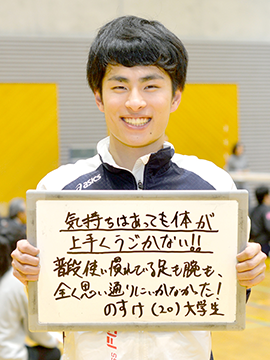 気持ちはあっても体が
上手くうごかない!!
普段使い慣れている足も腕も、
全く思い通りにいかなかった!
のすけ(20)大学生
asics